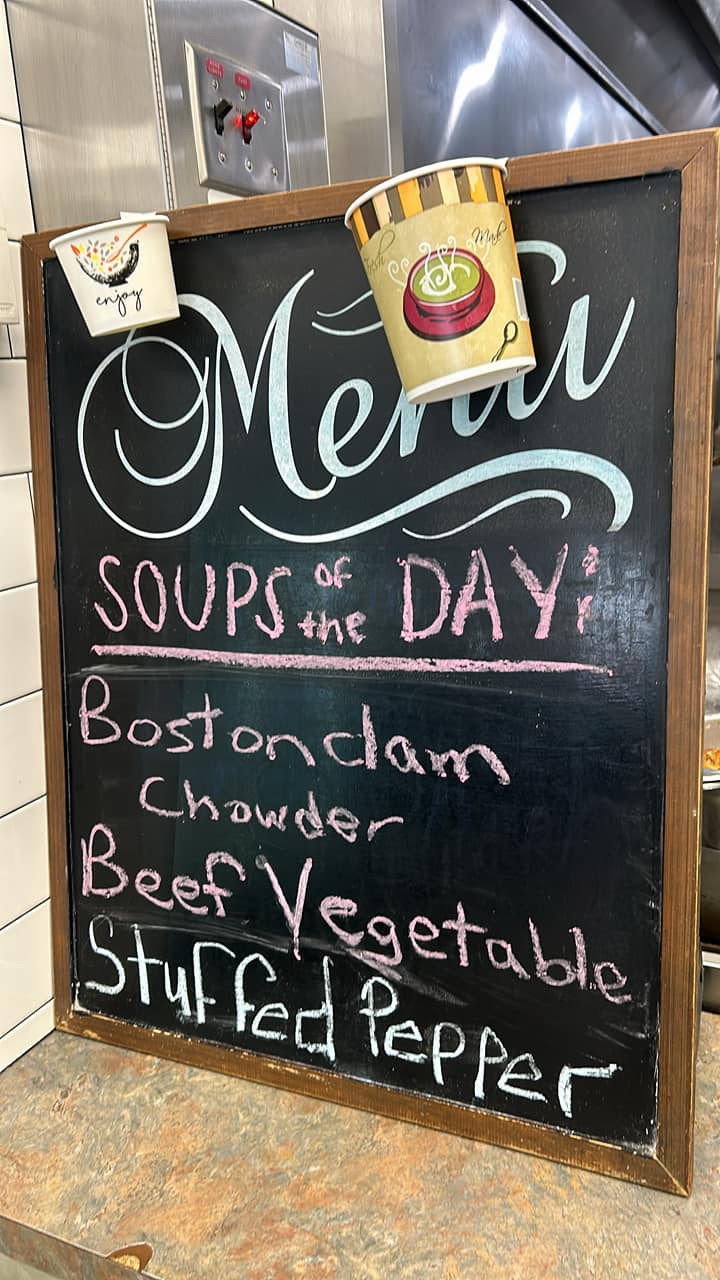 enjoy
Fresh
Made
Menu
SOUPS of the DAY:
Boston clam
Chowder
Beef Vegetable
Stuffed Pepper